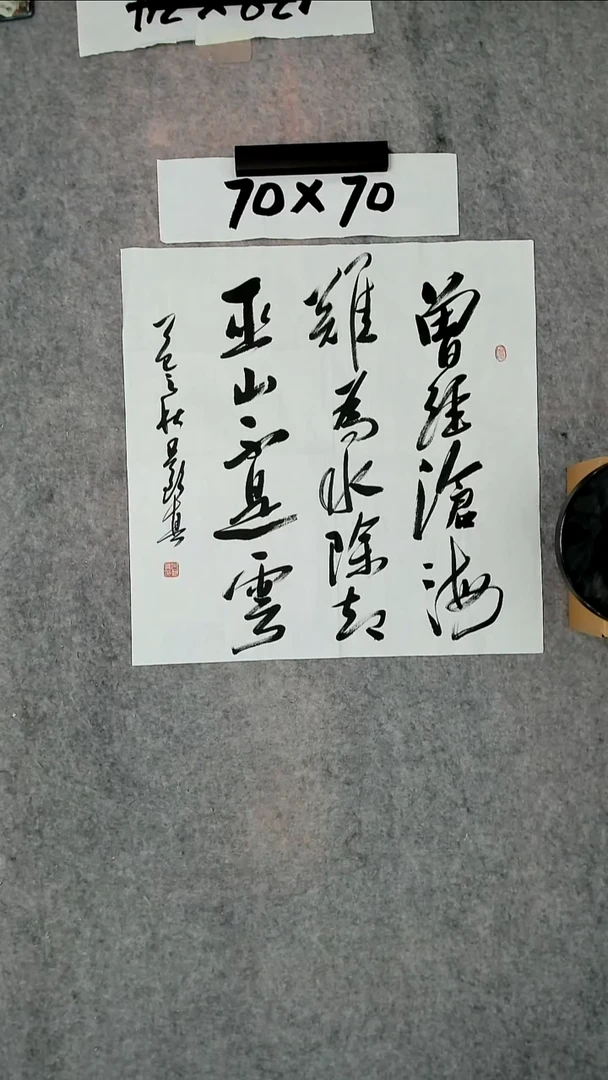 70×70
曾經滄海
難為水除却
巫山不是雲
乙巳之秋